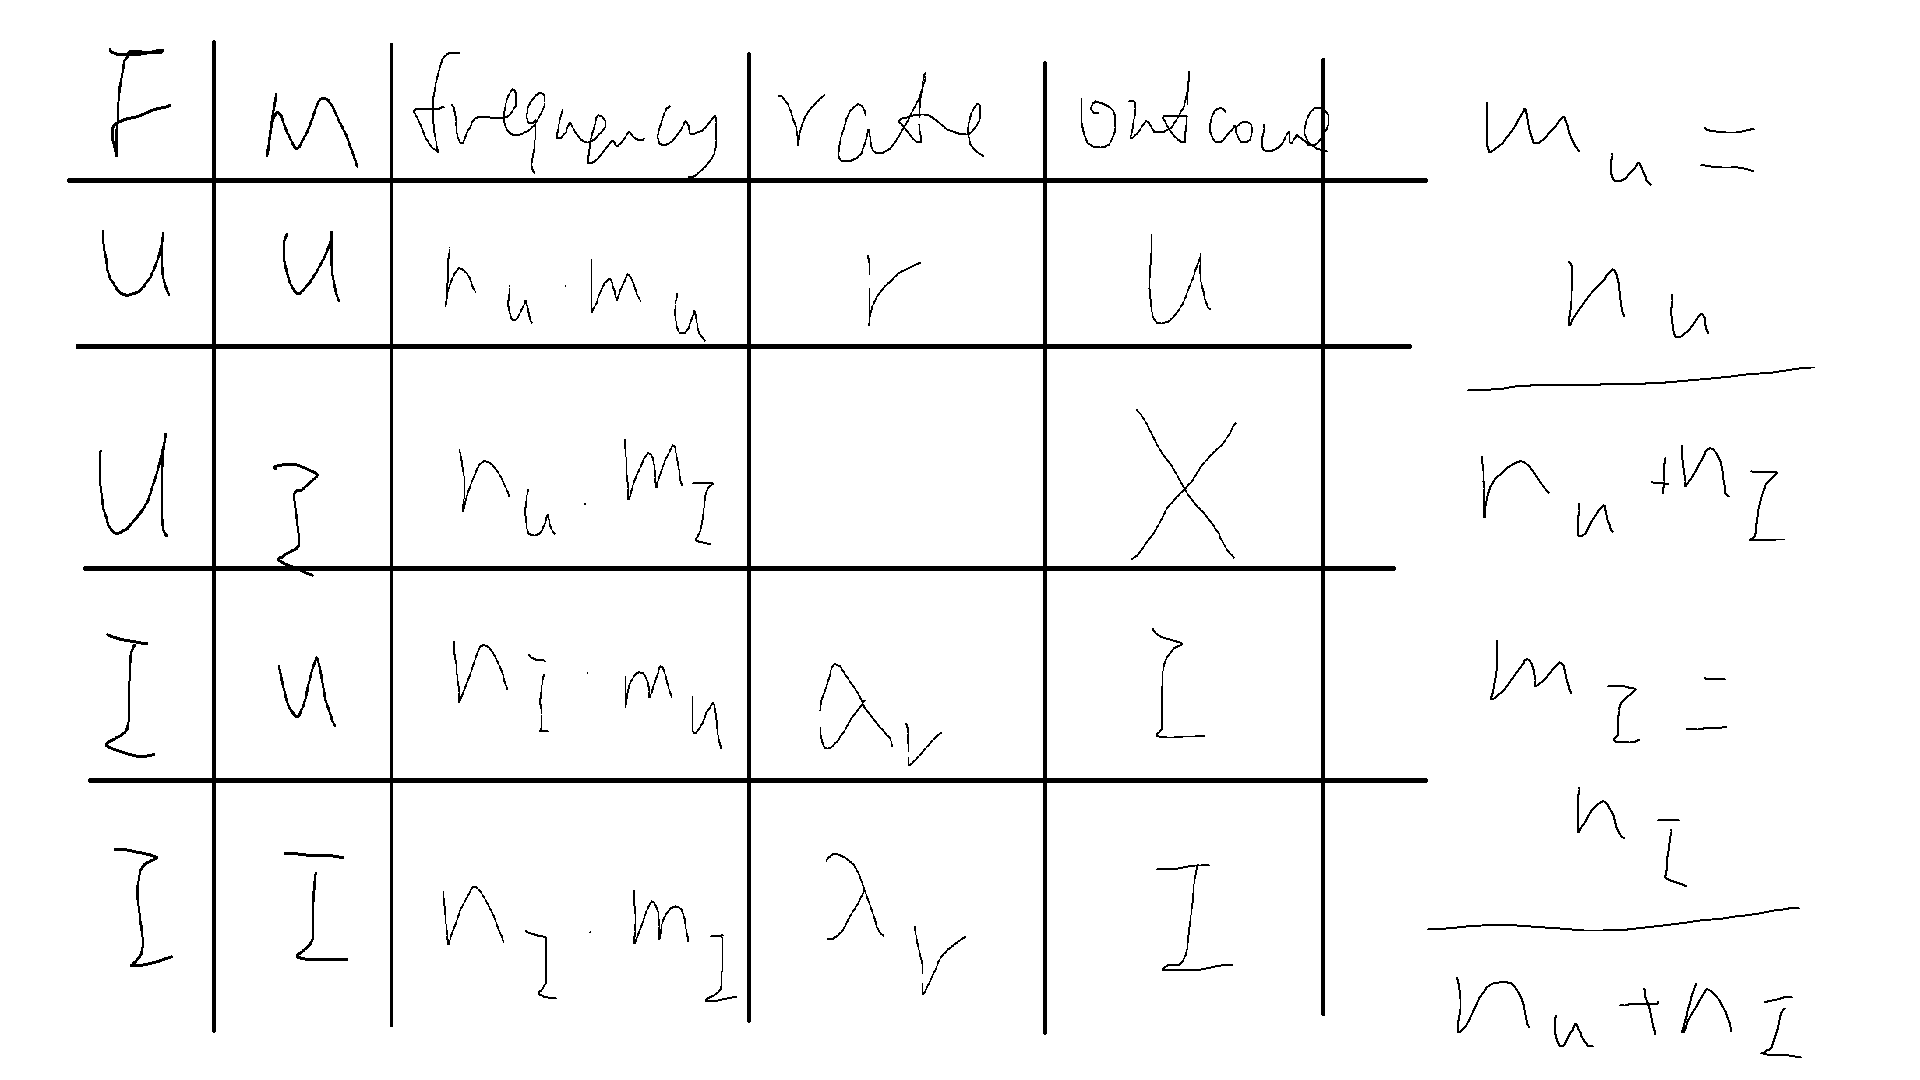 F M frequency rate outcome
U U nu · mu r U
U I nu · mI X
I u nI · mu λr I
I I nI · mI λr I
mu =
nu
nu + nI
mI =
nI
nu + nI